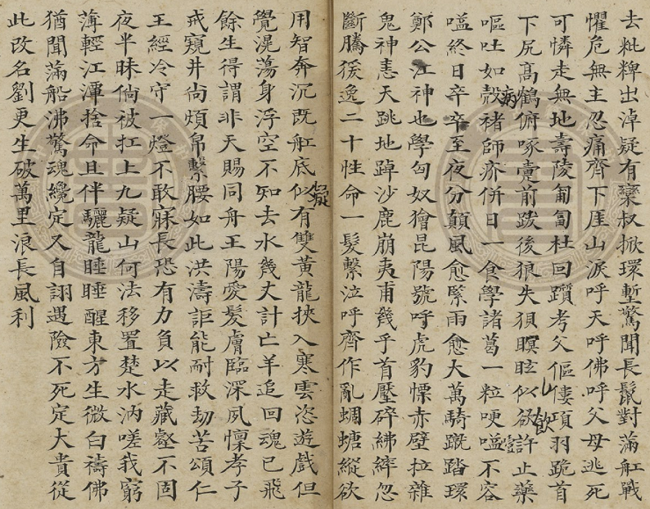 去粃粺出淖疑有欒叔掀環塹驚聞長鬣對滿舡戰
懼危無主忍痛齊下厓山淚呼天呼佛呼父母逃死
可憐走無地壽陵匍匐杜回躓考父傴僂項羽跪首
下尻高鶴俯啄疐前跋後狼失狽瞑眩似欲許止藥
嘔吐如殼褚師疥併日一食學諸葛一粒哽嗌不容
嗌終日卒卒至夜分顛風愈緊雨愈大萬騎蹴踏環
鄭公江神也學匈奴獪昆陽號呼虎豹慄赤壁拉雜
鬼神恚天跳地踔沙鹿崩夷甫幾乎首壓碎紼縴忽
斷騰猨逸二十性命一髮繫泣呼齊作亂蜩螗縱欲
用智奔沉既舡底似有雙黃龍挾入寒雲恣遊戲但
覺滉蕩身浮空不知去水幾丈計亡羊追回魂已飛
餘生得謂非天賜同舟王陽愛髮膚臨深夙懍孝子
戒窺井尙煩帛繫腰如此洪濤詎能耐救劫苦頌仁
王經冷守一燈不敢寐長恐有力負以走藏壑不固
夜半昧倘被扛上九疑山何法移置楚水汭嗟我窮
薄輕江渾捨命且伴驪龍睡睡醒東方生微白禱佛
猶聞滿船沸驚魂纔定又自詡遇險不死定大貴從
此改名劉更生破萬里浪長風利